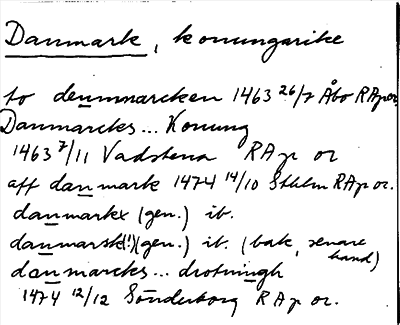 Danmark, konungarike
to denmmarcken 1463 26/7 Åbo RAp or.
Danmarcks... Konung
1463 7/11 Vadstena RAp or
aff danmark 1474 14/10 Sthlm RAp or.
danmarkx (gen.) ib.
danmarsk(!) (gen.) ib. (bak, senare hand)
danmarcks... drotningh
1474 12/12 Sönderborg RAp or.